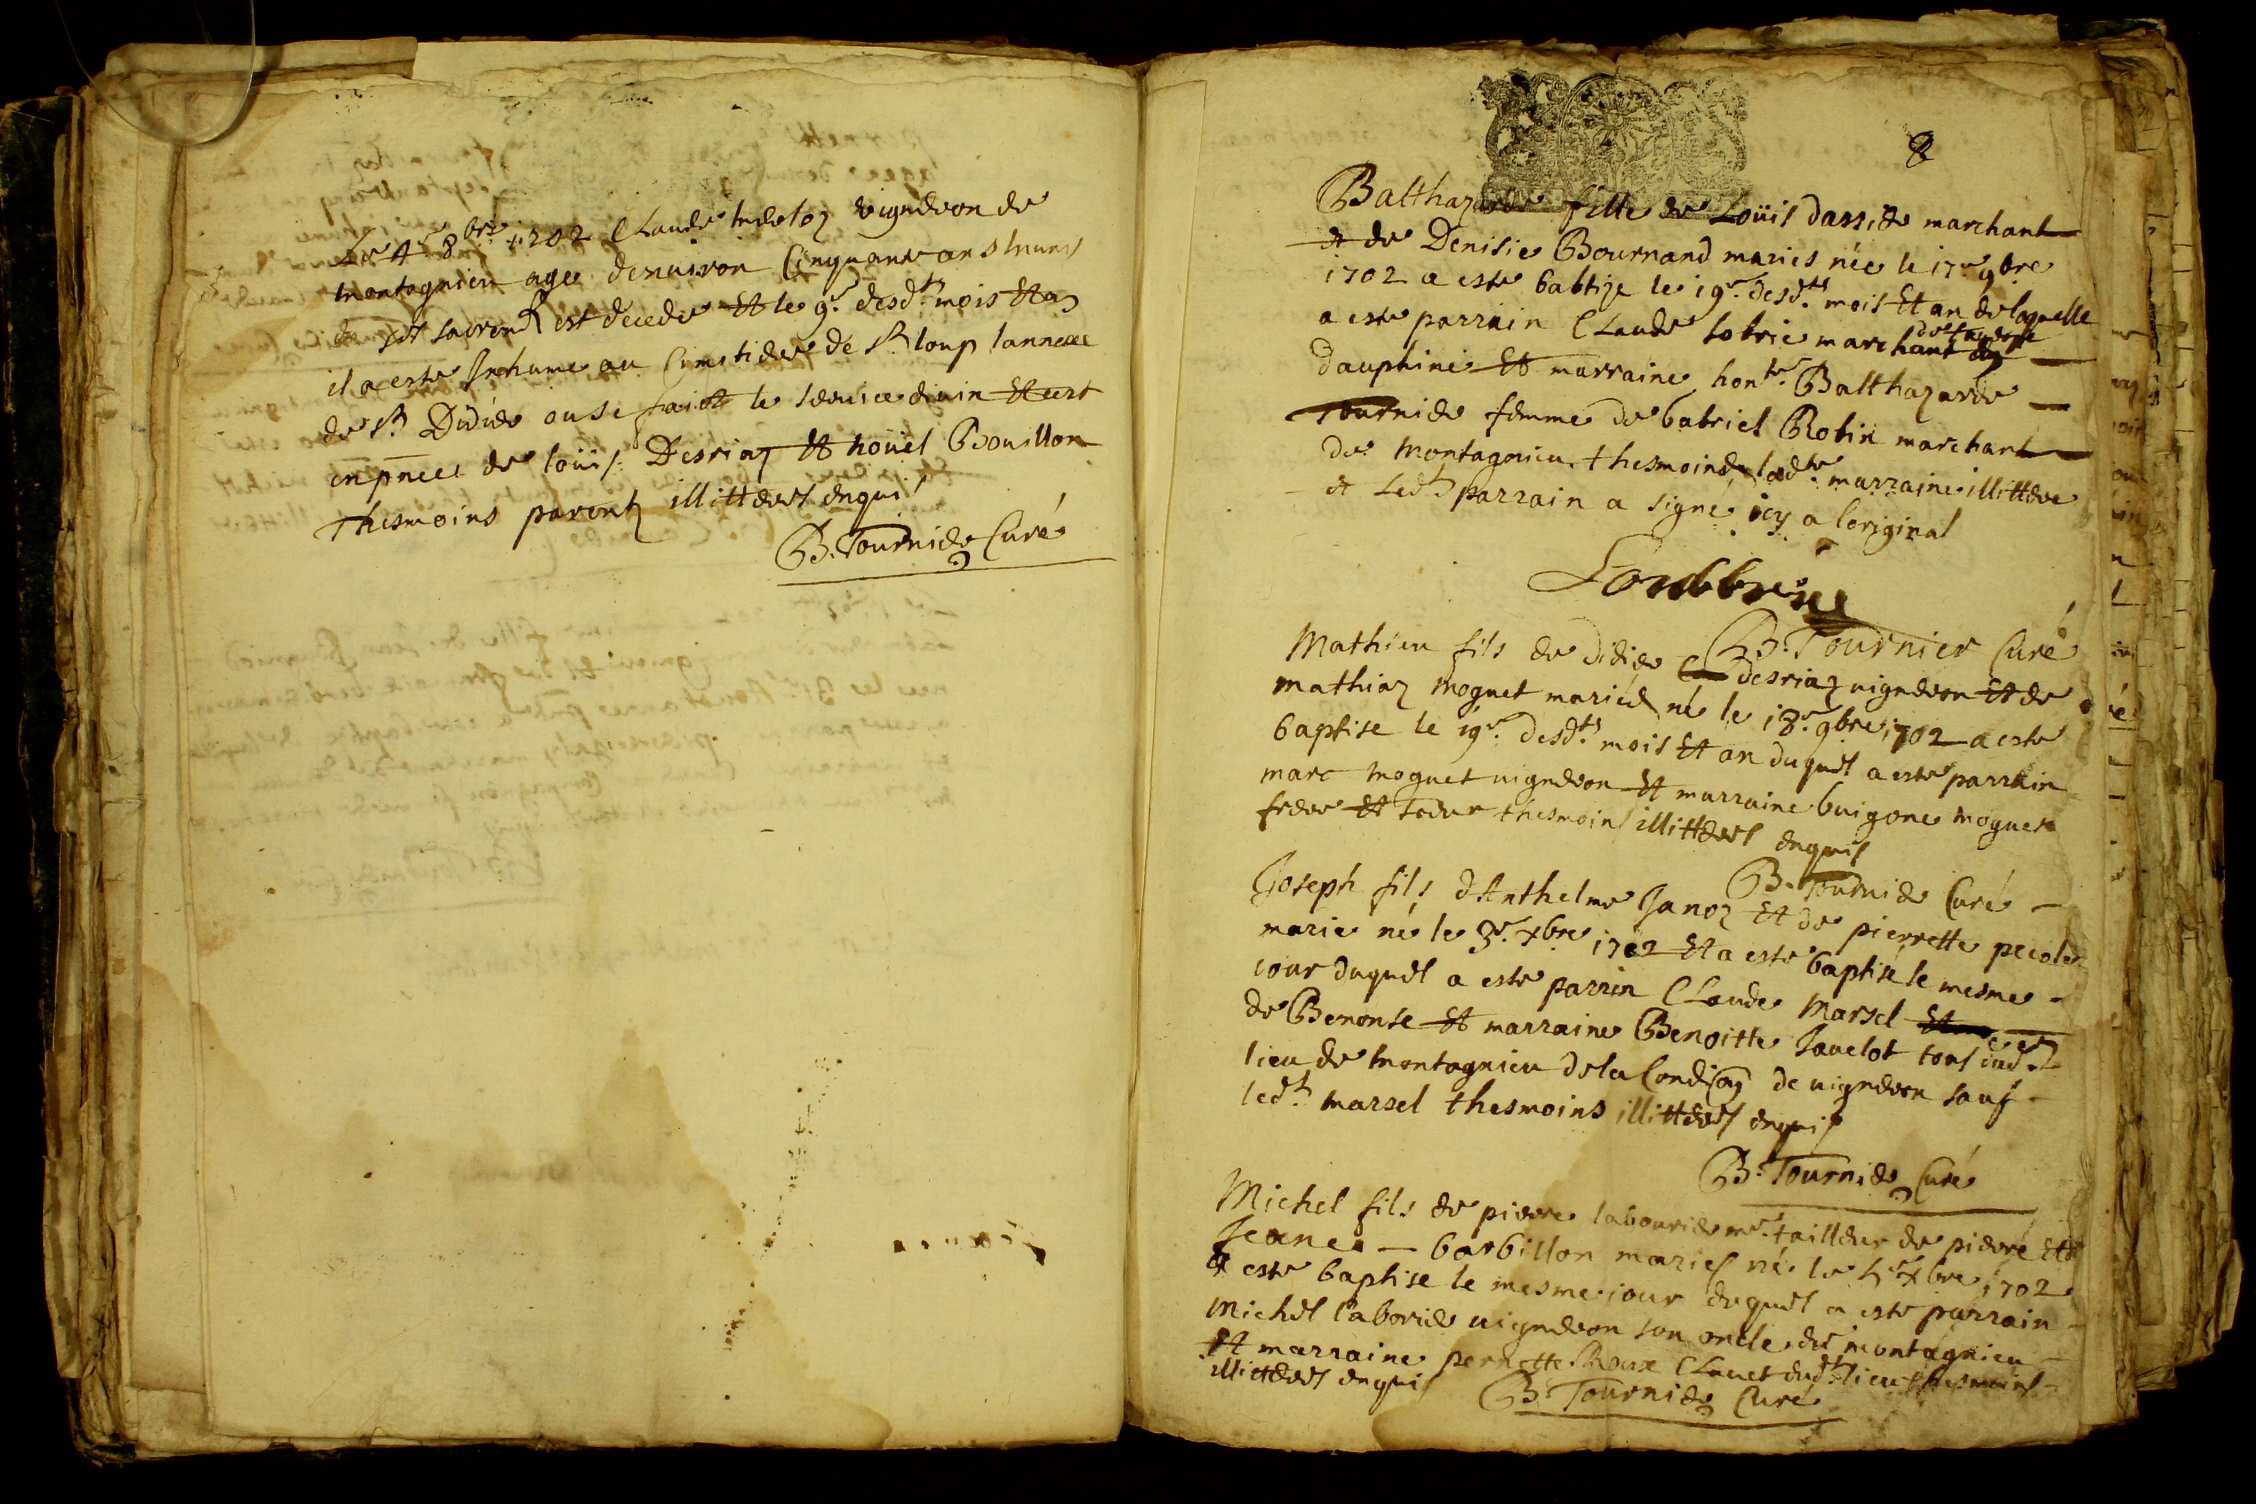 Le 4e 8bre 1702 Claude vigneron de
montagnieu agé denuiron Cinquante ans muni
des sts sacrem est decede Et le 9e desdts mois Et an
il a este Inhume au Cimetiere de st loup lannexe
de st Didier ou se faict le seruice diuin Et cest
en pnce de loüis Desriaz Et noüel Bouillon
Thesmoins parents illitteres enquis
B. Tournier Curé
2
Balthazarde fille de Loüis dassite marchant
et de Denisie Bournand maries née le 17e 9bre
1702 a este babtize le 19e desdts mois Et an de laquelle
a este parrain Claude marchant
dauphiné Et marraine honte Balthazarde
Tournier femme de Gabriel Robin marchant
de Montagnieu thesmoins ladte marraine illittere
et Ledt parrain a signé icy a loriginal
B. Tournier Curé
Mathieu fils de Didier Desriaz vigneron Et de
mathiaz Moguet maries né le 18e 9bre 1702 a este
baptise le 19e desdts mois Et an duquel a este parrain
marc Moguet vigneron Et marraine Guigone Moguet
frere Et soeur thesmoins illitteres enquis
B. Tournier Curé
Joseph fils dAnthelme Janoz Et de pierrette pecolet
marie né le 3e xbre 1702 Et a este baptisé le mesme
iour duquel a este parrin Claude Marsel
de Benonse Et marraine Benoitte Jauelot tous dudt
lieu de Montagnieu de la Condion de vigneron sauf
ledt marsel thesmoins illitteres enquis
B. Tournier Curé
Michel fils de pierre labourier me tailleur de pierre Et
Jeane barbillon maries né le xbre 1702
a este baptise le mesme iour duquel a este parrain
Michel laborier vigneron son oncle de montagnieu
Et marraine pernette Roux Clauet dudt lieu thesmoins
illitteres enquis
B. Tournier Curé